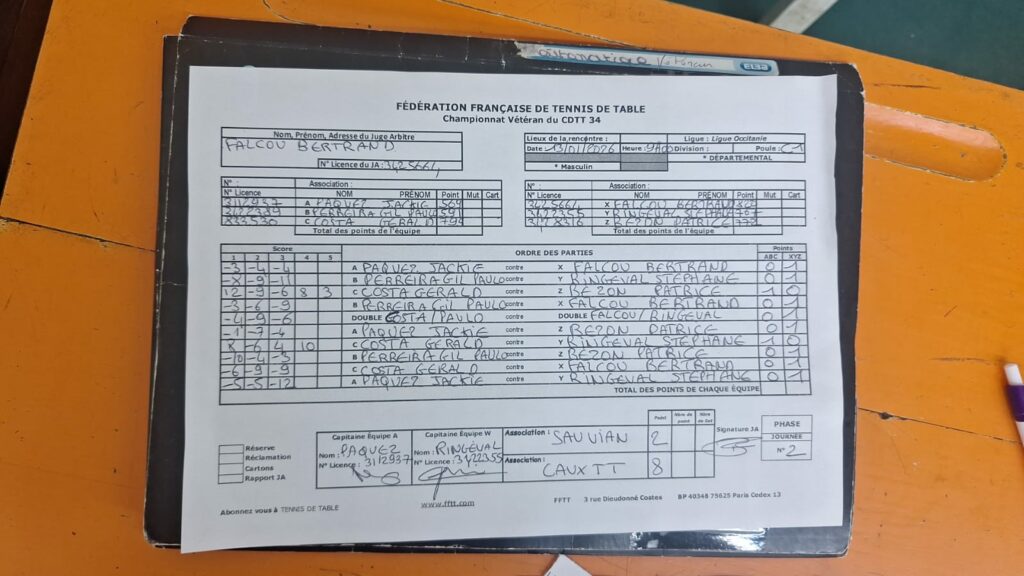 automatique Vétéran ELBA
FÉDÉRATION FRANÇAISE DE TENNIS DE TABLE
Championnat Vétéran du CDTT 34
Nom, Prénom, Adresse du Juge Arbitre
FALCOU BERTRAND
N° Licence du JA : 3425664
Lieux de la rencontre : Ligue : Ligue Occitanie
Date : 13/01/2026 Heure : 9h00 Division : Poule : C1
* Masculin * DÉPARTEMENTAL
N° : Association :
N° Licence NOM PRÉNOM Point Mut Cart
3112937 A PAQUEZ JACKIE 569
3422339 B PERREIRA GIL PAULO 591
833530 C COSTA GERALD 794
Total des points de l'équipe
N° : Association :
N° Licence NOM PRÉNOM Point Mut Cart
3425664 X FALCOU BERTRAND
3422355 Y RINGEVAL STEPHANE 707
3428316 Z REZON PATRICE
Total des points de l'équipe
Score ORDRE DES PARTIES Points
1 2 3 4 5 ABC XYZ
-3 -4 -4 A PAQUEZ JACKIE contre X FALCOU BERTRAND 0 1
-8 -9 -11 B PERREIRA GIL PAULO contre Y RINGEVAL STEPHANE 0 1
12 -9 -6 8 3 C COSTA GERALD contre Z REZON PATRICE 1 0
-3 -6 -9 B PERREIRA GIL PAULO contre X FALCOU BERTRAND 0 1
-4 -9 -6 DOUBLE COSTA/PAULO contre DOUBLE FALCOU/RINGEVAL 0 1
-1 -7 -4 A PAQUEZ JACKIE contre Z REZON PATRICE 0 1
8 -6 4 10 C COSTA GERALD contre Y RINGEVAL STEPHANE 1 0
-10 -4 -3 B PERREIRA GIL PAULO contre Z REZON PATRICE 0 1
-6 -9 -9 C COSTA GERALD contre X FALCOU BERTRAND 0 1
-5 -5 -12 A PAQUEZ JACKIE contre Y RINGEVAL STEPHANE 0 1
TOTAL DES POINTS DE CHAQUE ÉQUIPE
Réserve
Réclamation
Cartons
Rapport JA
Capitaine Équipe A
Nom : PAQUEZ
N° Licence : 3112937
Capitaine Équipe W
Nom : RINGEVAL
N° Licence : 3422355
Point Nbre de point Nbre de Set
Association : SAUVIAN 2
Association : CAUXTT 8
Signature JA
PHASE
JOURNEE
N° 2
Abonnez vous à TENNIS DE TABLE
www.fftt.com
FFTT 3 rue Dieudonné Costes BP 40348 75625 Paris Cedex 13